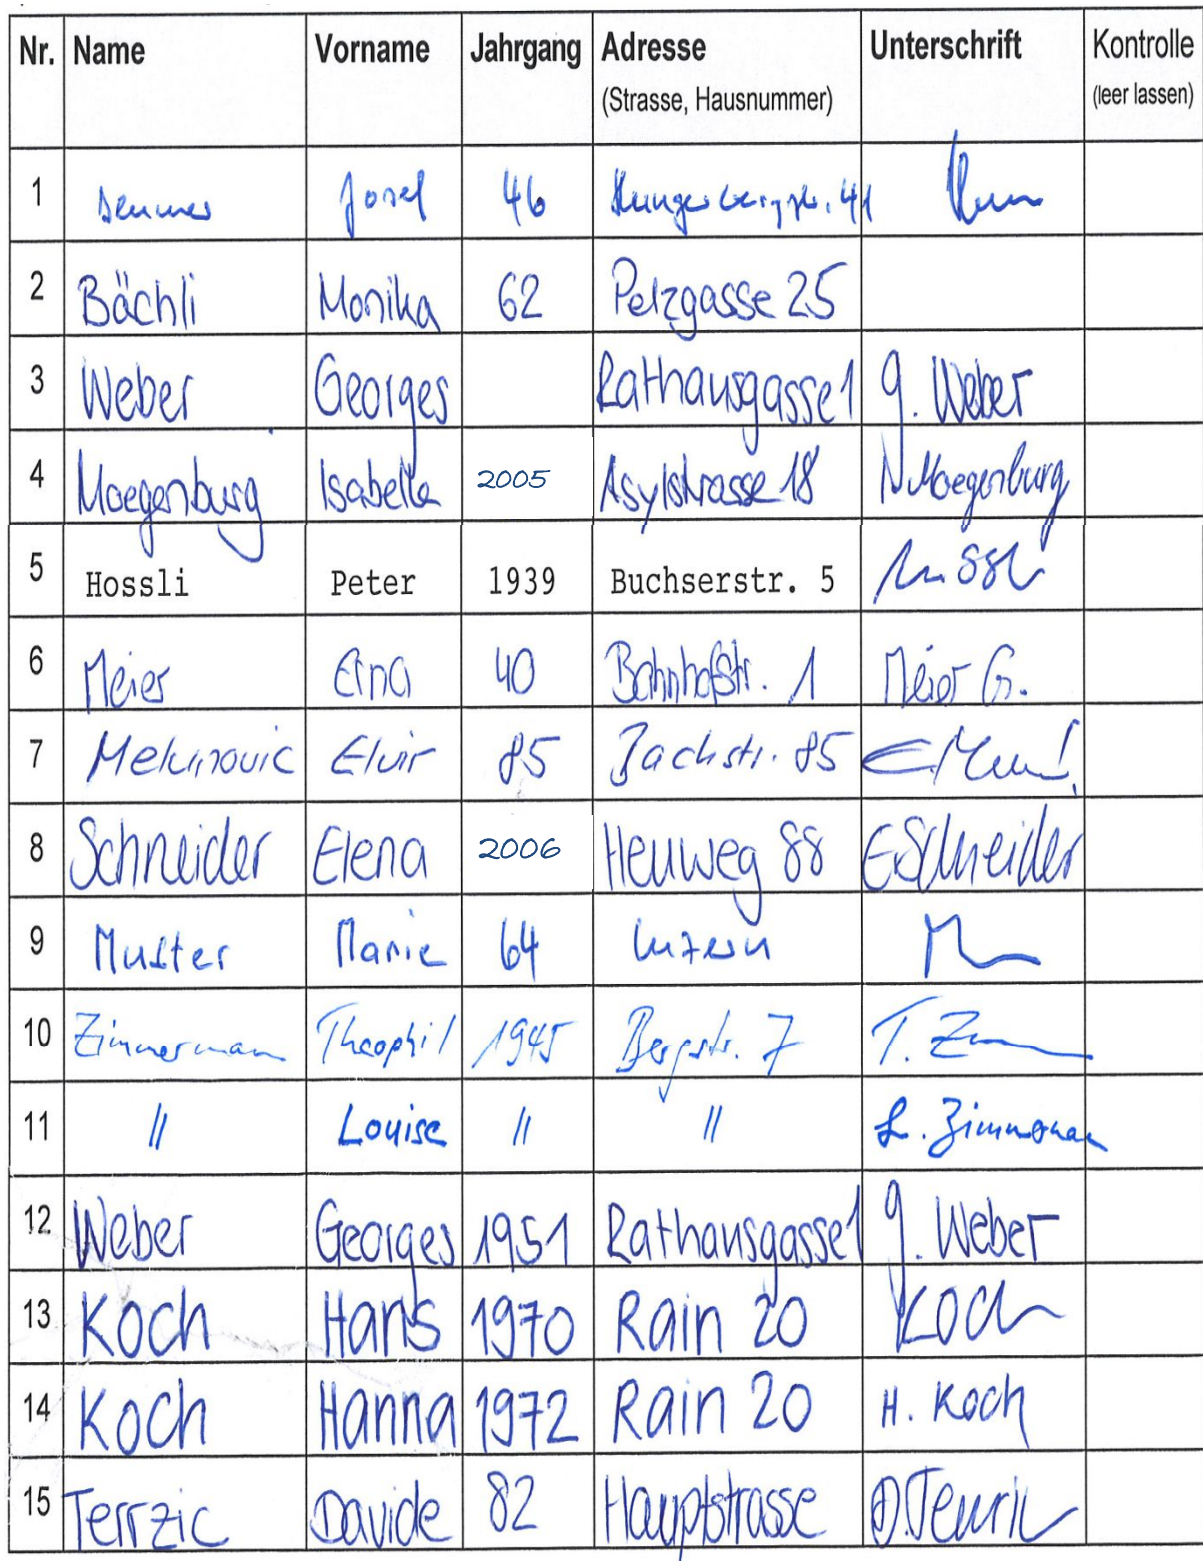 Nr. Name Vorname Jahrgang Adresse Unterschrift Kontrolle
(Strasse, Hausnummer) (leer lassen)
1 Josef 46 41
2 Bächli Monika 62 Pelzgasse 25
3 Weber Georges Rathausgasse 1 G. Weber
4 Moegenburg Isabella 2005 Asylstrasse 18 Moegenburg
5 Hossli Peter 1939 Buchserstr. 5
6 Meier Bahnhofstr. 1 Meier G.
7 Elvir 85 Bachstr. 85
8 Schneider Elena 2006 Heuweg 88 E. Schneider
9 Muster Marie 64 Luzern
10 Zimmermann Theophil 1945 Bergstr. 7
11 〃 Louise 〃 〃 L. Zimmerman
12 Weber Georges 1951 Rathausgasse 1 G. Weber
13 Koch Hans 1970 Rain 20 Koch
14 Koch Hanna 1972 Rain 20 H. Koch
15 Terrzic Davide 82 Hauptstrasse